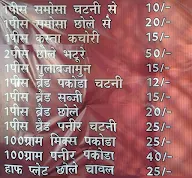 1पीस समोसा चटनी से 10/-
1पीस समोसा छोले से 20/-
1पीस कचौरी 15/-
2पीस छोले भटूरे 50/-
1पीस गुलाबजामुन 15/-
1पीस ब्रेड पकोडा चटनी 12/-
1पीस ब्रेड सब्जी 15/-
1पीस ब्रेड छोले 20/-
1पीस ब्रेड पनीर चटनी 25/-
100ग्राम मिक्स पकोडा 25/-
100ग्राम पनीर पकोडा 40/-
हाफ प्लेट छोले चावल 25/-